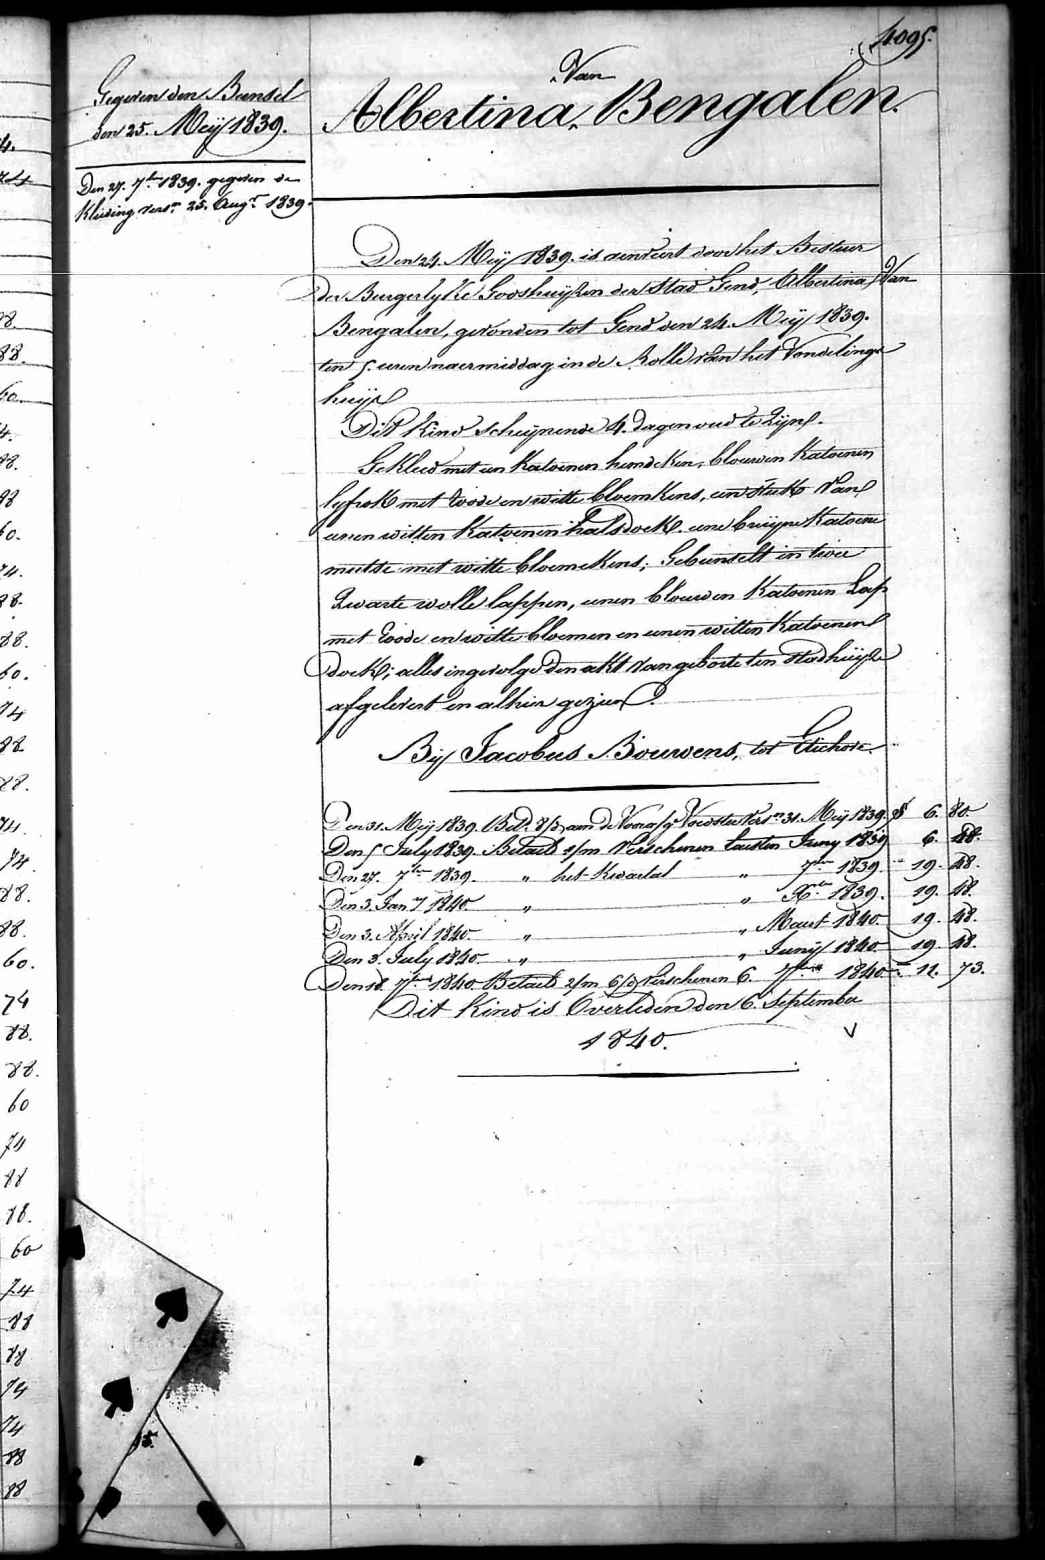 4095.
Gegeven den Bunsel
den 25. Meij 1839.
Den 27. 7br 1839. gegeven de
Kleeding versn 25. Augt 1839.
Van
Albertina, Bengalen.
Den 24. Meij 1839. is aenveirt door het Bestuer
der Burgerlyke Godshuyzen der Stad Gend, Albertina Van
Bengalen, gevonden tot Gend den 24. Meij 1839.
ten 5. uren naermiddag in de Rolle van het Vondelings
huys
Dit Kind scheynende 4. dagen oud te zyn.
Gekleed met een Katoenen hemdeken, blouwen Katoenen
lyfrok met roode en witte bloemkens, een stuk van
eenen witten Katoenen halsdoek. eene bruyne Katoene
mutse met witte bloemekens; Gebunselt in twee
Zwarte wolle lappen, eenen blouwen Katoenen Lap
met roode en witte bloemen en eenen witten Katoenen
doek; alles ingevolge den akt van geborte ten Stadhuyze
afgelevert en alhier gezien.
Bij Jacobus Bouwens, tot
Den 31. Meij 1839. Bet. 8/d aan de Voedster Versn 31. Meij 1839. 6. 80.
Den 5 July 1839. Betaelt 1/m Verschenen laesten Juny 1839 6. 88.
Den 27. 7br 1839. " het Kwartal " 7br 1839. 19. 48.
Den 3. Jany 1840. " " Xbr 1839. 19. 48.
Den 3. April 1840. " " Maert 1840. 19. 48.
Den 3. July 1840. " " Junij 1840 19. 48.
Den 18. 7br 1840. Betaelt 2/m 6/d Verschenen 6. 7br 1840. 11. 73.
Dit Kind is Overleden den 6. September
1840.